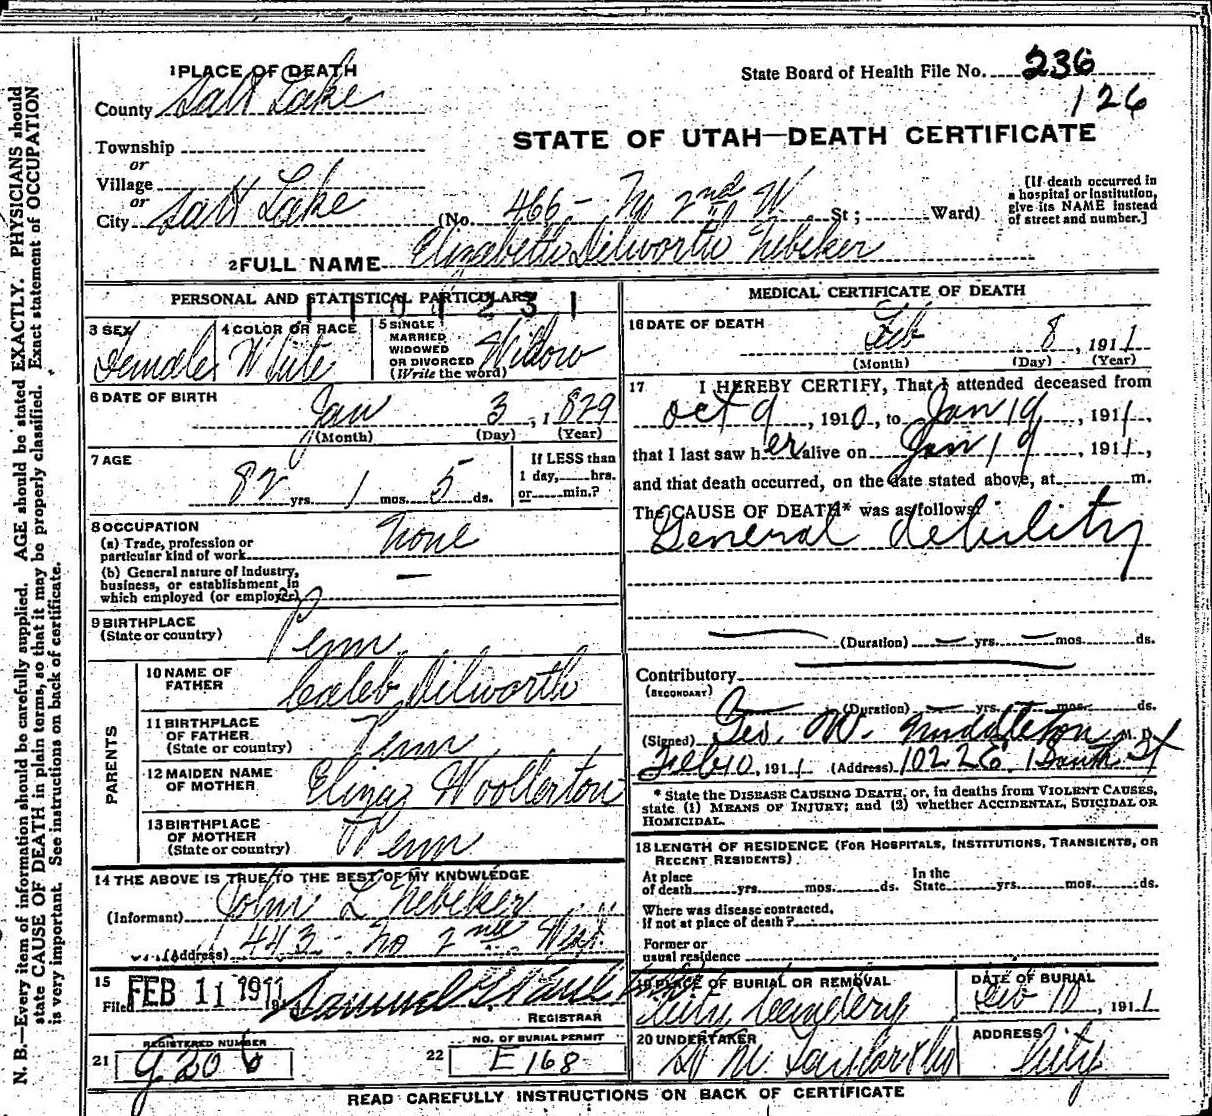 1 PLACE OF DEATH
County Salt Lake
State Board of Health File No. 236
126
STATE OF UTAH—DEATH CERTIFICATE
Township
or
Village
or
City Salt Lake (No. 466 - No 2nd W St; Ward)
[If death occurred in a hospital or institution, give its NAME instead of street and number.]
2 FULL NAME Elizabeth Dilworth Nebeker
PERSONAL AND STATISTICAL PARTICULARS
1 1 0 1 2 3 1
3 SEX Female
4 COLOR OR RACE White
5 SINGLE MARRIED WIDOWED OR DIVORCED (Write the word) Widow
6 DATE OF BIRTH
Jan 3, 1829
(Month) (Day) (Year)
7 AGE
82 yrs. 1 mos. 5 ds.
If LESS than 1 day, hrs. or min.?
8 OCCUPATION
(a) Trade, profession or particular kind of work None
(b) General nature of industry, business, or establishment in which employed (or employer) —
9 BIRTHPLACE
(State or country) Penn
PARENTS
10 NAME OF FATHER Caleb Dilworth
11 BIRTHPLACE OF FATHER (State or country) Penn
12 MAIDEN NAME OF MOTHER Eliza Woollerton
13 BIRTHPLACE OF MOTHER (State or country) Penn
14 THE ABOVE IS TRUE TO THE BEST OF MY KNOWLEDGE
(Informant) John L Nebeker
(Address) 443 - No 2nd West
15
Filed FEB 11 1911 191 Samuel G Paul
REGISTRAR
21 REGISTERED NUMBER
22 NO. OF BURIAL PERMIT
E 168
MEDICAL CERTIFICATE OF DEATH
16 DATE OF DEATH
Feb 8, 1911
(Month) (Day) (Year)
17 I HEREBY CERTIFY, That I attended deceased from
Oct 9, 1910, to Jan 19, 1911,
that I last saw her alive on Jan 19, 1911,
and that death occurred, on the date stated above, at m.
The CAUSE OF DEATH* was as follows:
General debility
(Duration) yrs. mos. ds.
Contributory
(SECONDARY)
(Duration) yrs. mos. ds.
(Signed) Geo. W. Middleton M. D.
Feb 10, 1911 (Address) 1022 E. 1 South St
* State the DISEASE CAUSING DEATH, or, in deaths from VIOLENT CAUSES, state (1) MEANS OF INJURY; and (2) whether ACCIDENTAL, SUICIDAL OR HOMICIDAL.
18 LENGTH OF RESIDENCE (FOR HOSPITALS, INSTITUTIONS, TRANSIENTS, OR RECENT RESIDENTS).
At place of death yrs. mos. ds. In the State yrs. mos. ds.
Where was disease contracted, if not at place of death?
Former or usual residence
19 PLACE OF BURIAL OR REMOVAL
City Cemetery
DATE OF BURIAL
Feb 10, 1911
20 UNDERTAKER
S M Taylor & Co
ADDRESS
City
READ CAREFULLY INSTRUCTIONS ON BACK OF CERTIFICATE
N. B.—Every item of information should be carefully supplied. AGE should be stated EXACTLY. PHYSICIANS should
state CAUSE OF DEATH in plain terms, so that it may be properly classified. Exact statement of OCCUPATION
is very important. See instructions on back of certificate.